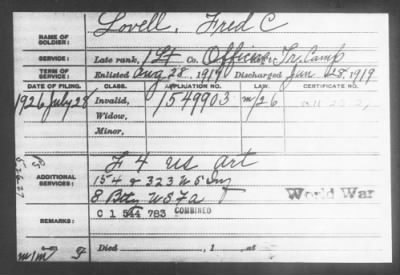 NAME OF SOLDIER: Lovell, Fred C
SERVICE: Late rank, 1 Lt Co. Officers Tr. Camp
TERM OF SERVICE: Enlisted Aug 28, 1917 Discharged Jan 28, 1919
DATE OF FILING. CLASS. APPLICATION NO. LAW. CERTIFICATE NO.
1926 July 28 Invalid, 1549903 m/26
Widow,
Minor,
ADDITIONAL SERVICES: F 4 US Art
154 & 323 US Inf
8 Btry US Fa T
World War
REMARKS: C 1 544 783 COMBINED
Died , 1 , at